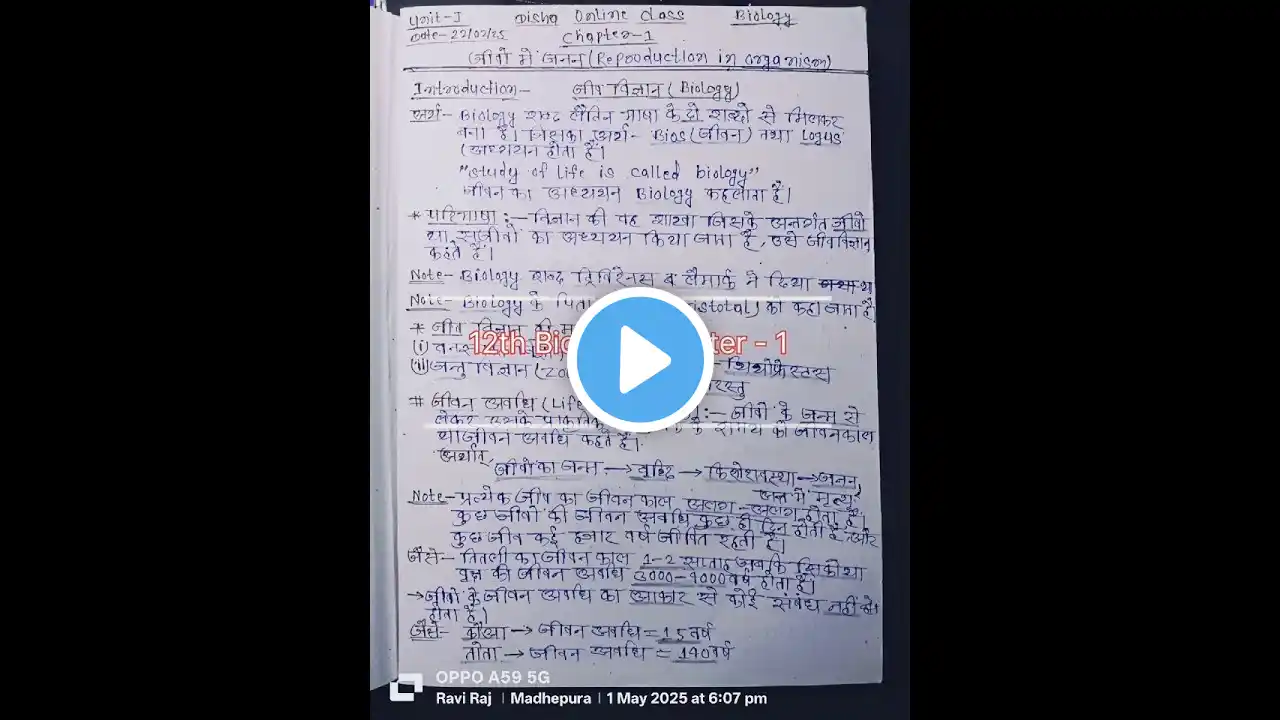 Unit-I Disha Online Class Biology
Date-22/02/25 Chapter-1
जीवों में जनन (Reproduction in organism)
Introduction- जीव विज्ञान (Biology)
अर्थ- Biology शब्द लैटिन भाषा के दो शब्दो से मिलकर
बना है। जिसका अर्थ- Bios (जीवन) तथा Logus
(अध्ययन होता है।
"study of life is called biology"
जीवन का अध्ययन Biology कहलाता है।
* परिभाषा :- विज्ञान की वह शाखा जिसके अन्तर्गत जीवों
या सजीवों का अध्ययन किया जाता है, उसे जीवविज्ञान
कहते हैं।
Note- Biology शब्द ट्रिविरेनस व लैमार्क ने दिया था
Note- Biology के पिता istotal) को कहा जाता है।
* जीव विज्ञान की
12th Bio ter - 1
(i) वनस्
(ii) जन्तु विज्ञान (Zo - थियोफ्रेस्टस
रस्तु
# जीवन अवधि (Life :- जीवों के जन्म से
लेकर उसके प्राकृतिक के समय को जीवनकाल
या जीवन अवधि कहते हैं।
अर्थात्
जीवों का जन्म → वृद्धि → किशोरावस्था → जनन,
अंत में मृत्यु
Note- प्रत्येक जीव का जीवन काल अलग-अलग होता है।
कुछ जीवों की जीवन अवधि कुछ ही दिन होती है, और
कुछ जीव कई हजार वर्ष जीवित रहती है।
जैसे- तितली का जीवन काल 1-2 सप्ताह जबकि सिकोया
वृक्ष की जीवन अवधि 3000-4000 वर्ष होता है।
→ जीवों के जीवन अवधि का आकार से कोई संबंध नहीं
होता है।
जैसे- कौआ → जीवन अवधि = 15 वर्ष
तोता → जीवन अवधि = 140 वर्ष
OPPO A59 5G
Ravi Raj | Madhepura | 1 May 2025 at 6:07 pm